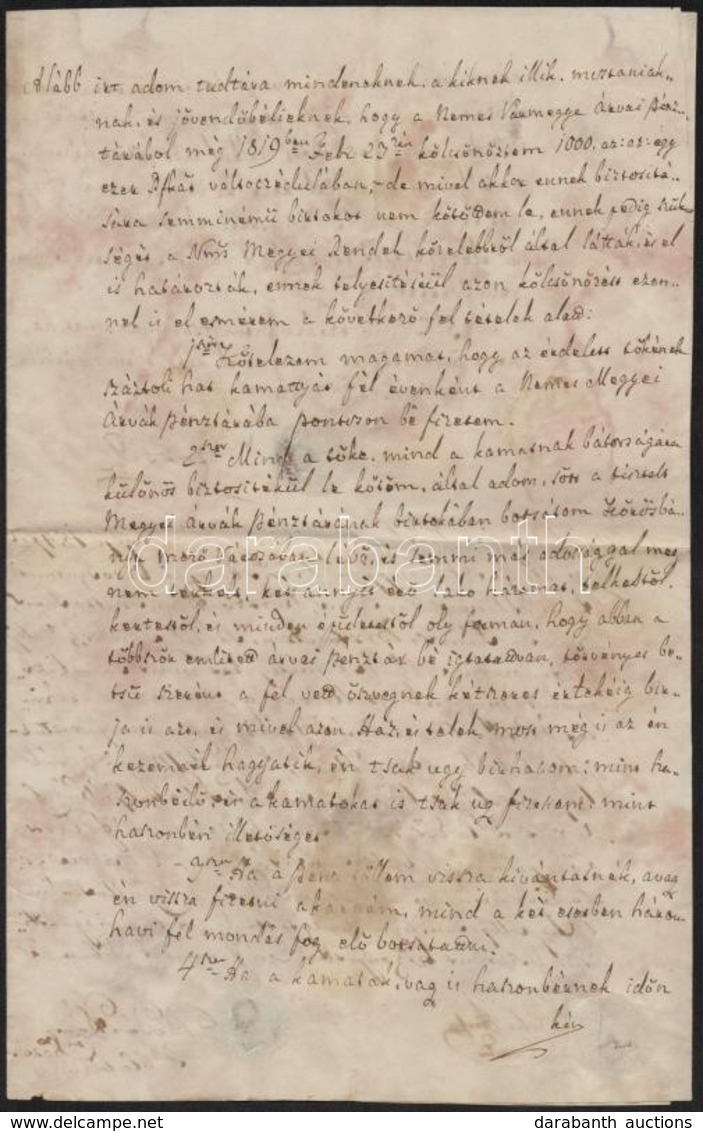 Alább irt adom tudtára mindeneknek, a kiknek illik, mostaniak„
nak, és jövendőbélieknek, hogy a Nemes Vármegye Árvai Pénz„
tárából még 1819ben Febr 23án kölcsönöztem 1000. az: az: egy
ezer Rfkat váltóczédulában, – de mivel akkor ennek biztositá„
sára semminémü birtokot nem kötöttem le, ennek pedig szük
ségét a Nms Megyei Rendek közelebbről által látták, és el
is határozták, ennek telyesitéséül azon kölcsönözést ezen„
nel is el esmérem a következő fel tételek alatt:
1ször Kötelezem magamat, hogy az érdeklett tőkének
száztoli hat kamattyát fél évenként a Nemes Megyei
Árvák Pénztárába pontoson bé fizetem.
2szor Mind a tőke, mind a kamatnak bátorságára
különös biztositékúl le kötöm, által adom, sőt a tisztelt
Megyei Árvák Pénztárának birtokában botsátom Körösbá„
nya mező Városában lévő, és semmi más adossággal meg
nem terhelt, lakó házamat, telkestől,
kertestől, és minden épületestől oly formán, hogy abban a
többször emlitett árvai Pénztár bé igtatattván, törvényes be„
tsü szerént a fel vett öszvegnek kétszeres értékéig bir„
ja is azt, és mivel azon Ház, és telek most még is az én
kezemnél hagyatik, én tsak ugy birhatom, mint ha„
szonbérlő, és a kamatokat is tsak ug fizetem, mint
haszonbéri illetőséget
3szor Ha a Pénz tőllem vissza kivántatnék, avag
én vissza fizetni akarnám, mind a két esetben három
havi fel mondás fog elő botsátattni.
4szer Ha a kamatok, vag is haszonbérnek időn
kén
darabanth
darabanth auctions